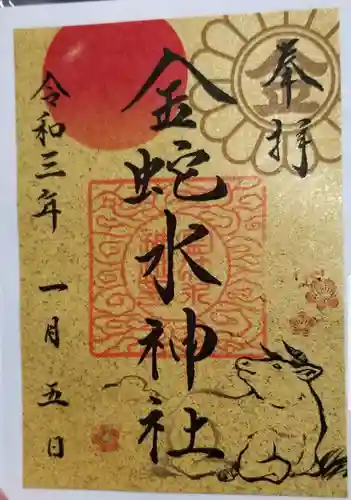 奉拝
金蛇水神社
令和三年 一月 五日